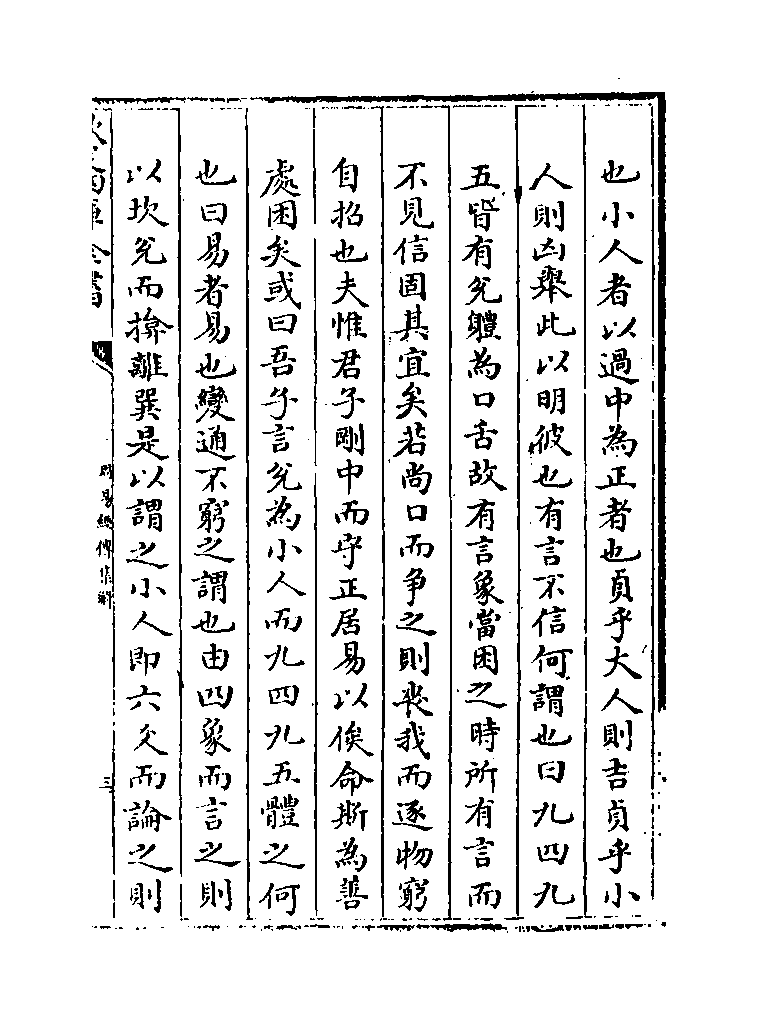 也小人者以過中為正者也貞乎大人則吉貞乎小
人則凶舉此以明彼也有言不信何謂也曰九四九
五皆有兊體為口舌故有言象當困之時所有言而
不見信固其宜矣若尚口而爭之則喪我而逐物窮
自招也夫惟君子剛中而守正居易以俟命斯為善
處困矣或曰吾子言兊為小人而九四九五體之何
也曰易者易也變通不窮之謂也由四象而言之則
以坎兊而揜離巽是以謂之小人即六爻而論之則
欽定四庫全書
周易經傳集解
三